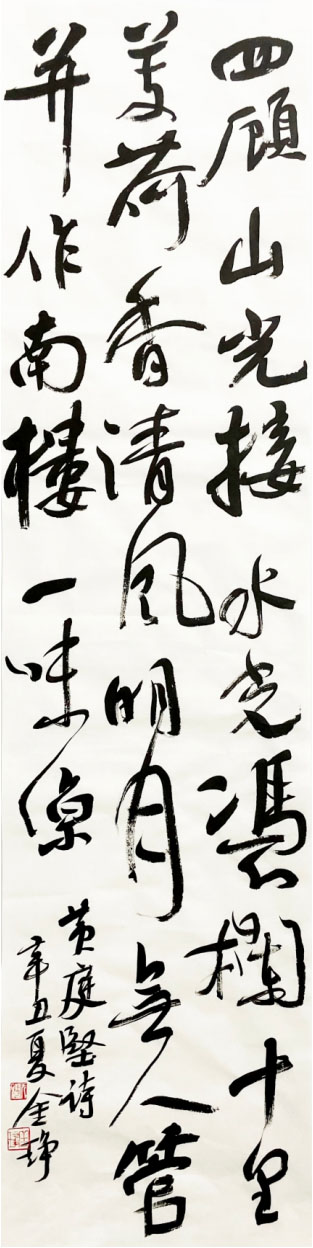 四顾山光接水光憑欄十里
芰荷香清风明月無人管
并作南樓一味凉
黄庭堅诗
辛丑夏金静